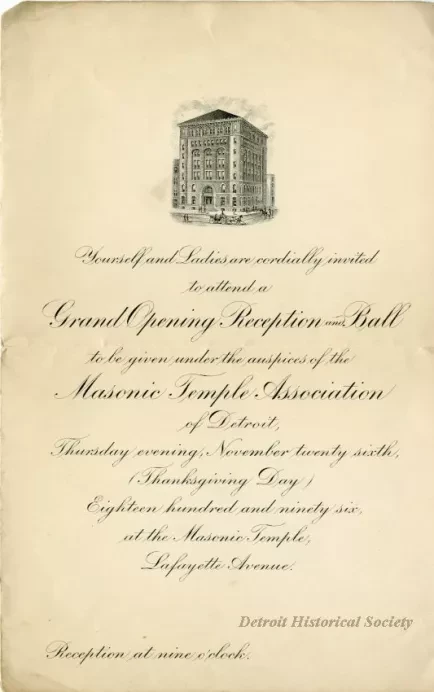 Yourself and Ladies are cordially invited
to attend a
Grand Opening Reception and Ball
to be given under the auspices of the
Masonic Temple Association
of Detroit,
Thursday evening, November twenty sixth,
(Thanksgiving Day)
Eighteen hundred and ninety six,
at the Masonic Temple,
Lafayette Avenue.
Detroit Historical Society
Reception at nine o'clock.